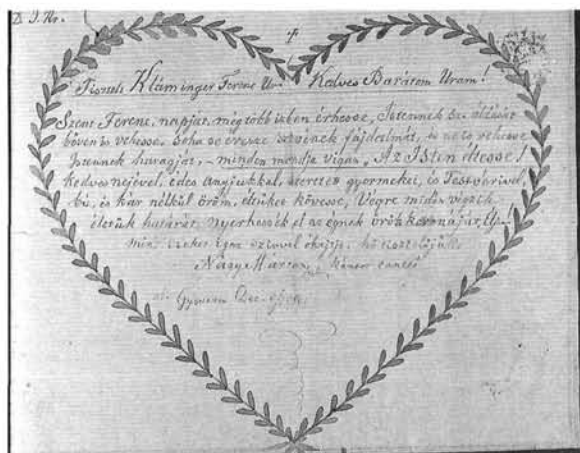 D. I. Kr.
Tisztelt Kláminger Ferenc Ur Kedves Barátom Uram!
Szent Ferenc, napját, még több ízben érhesse, Istennek áldását
bőven is vehesse. Soha se érezze szívének fájdalmát, is ne is vehesse
Istennek haragját, – minden mondja vígan, Az Isten éltesse!
kedves nejével, édes anyjukkal, szeretett gyermekei, és Testvérivel,
bú, és kár nélkül öröm, életüket kövesse, Végre midőn végzik
életük határát, nyerhessék el az égnek örök koronáját,
mint ezeket igaz szívvel óhajtja hű tisztelőjük
Nagy Márton
Dec